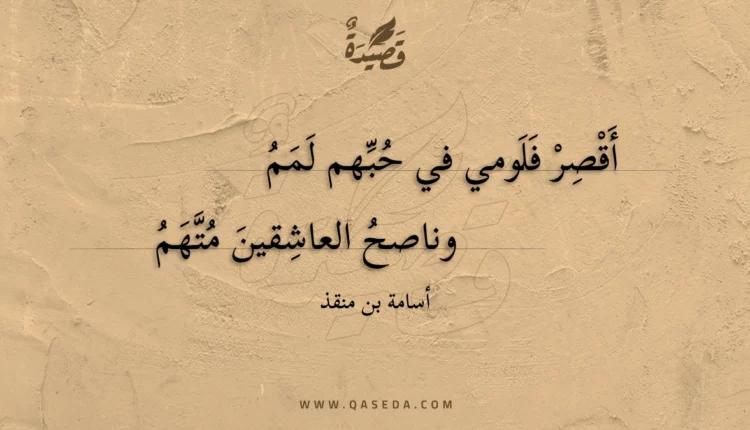 قَصِيْدَةٌ
أَقْصِرْ فَلَومي في حُبِّهم لَمَمُ
وناصحُ العاشِقينَ مُتَّهَمُ
أسامة بن منقذ
WWW.QASEDA.COM